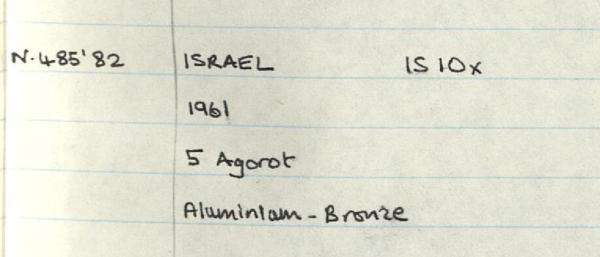 N.485'82 ISRAEL IS 10x
1961
5 Agorot
Aluminium - Bronze